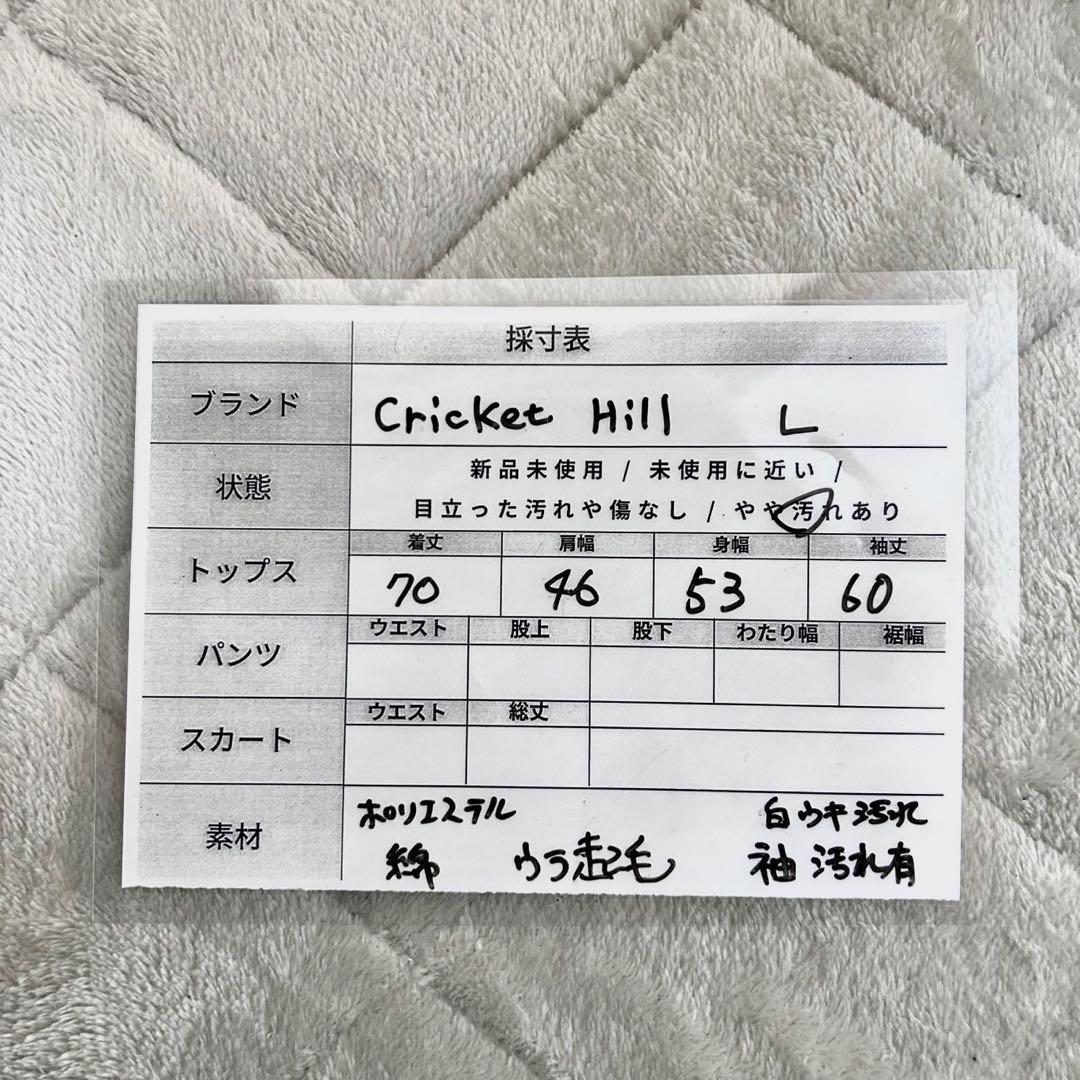 採寸表
ブランド Cricket Hill L
状態 新品未使用 / 未使用に近い /
目立った汚れや傷なし / やや汚れあり
トップス 着丈 肩幅 身幅 袖丈
70 46 53 60
パンツ ウエスト 股上 股下 わたり幅 裾幅
スカート ウエスト 総丈
素材 ポリエステル 白ウキ汚れ
綿 ウラ起毛 袖 汚れ有